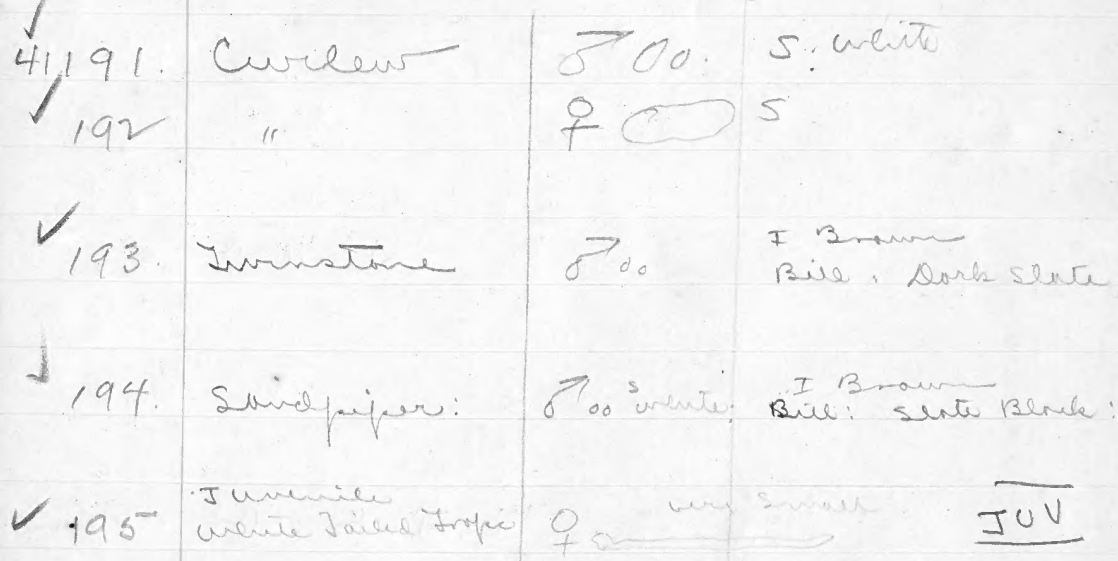 41191. Curlew ♂ S. white
192 " ♀ S
193. Turnstone ♂ I Brown
Bill. Dark Slate
194. Sandpiper: ♂ S white. I Brown
Bill: Slate Black:
195 Juvenile
White Tailed Tropic ♀ very small JUV